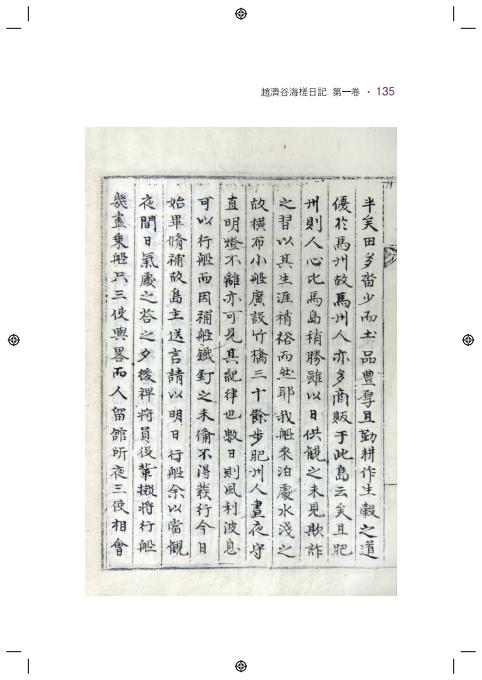 趙濟谷海槎日記 第一卷 · 135
半矣田多畓少而土品豊厚且勤耕作生穀之道
優於馬州故馬州人亦多商販于此島云矣且肥
州則人心比馬島稍勝雖以日供觀之未見欺詐
之習以其生涯稍裕而然耶我船來泊處水淺之
故橫布小船廣設竹橋三十餘步肥州人晝夜守
直明燈不離亦可見其紀律也數日則風利波息
可以行船而因補船鐵釘之未備不得發行今日
始畢修補故島主送言請以明日行船余以當觀
夜間日氣處之答之夕後裨將員役輩擬將行船
幾盡乘船只三使輿畧而人留館所夜三使相會